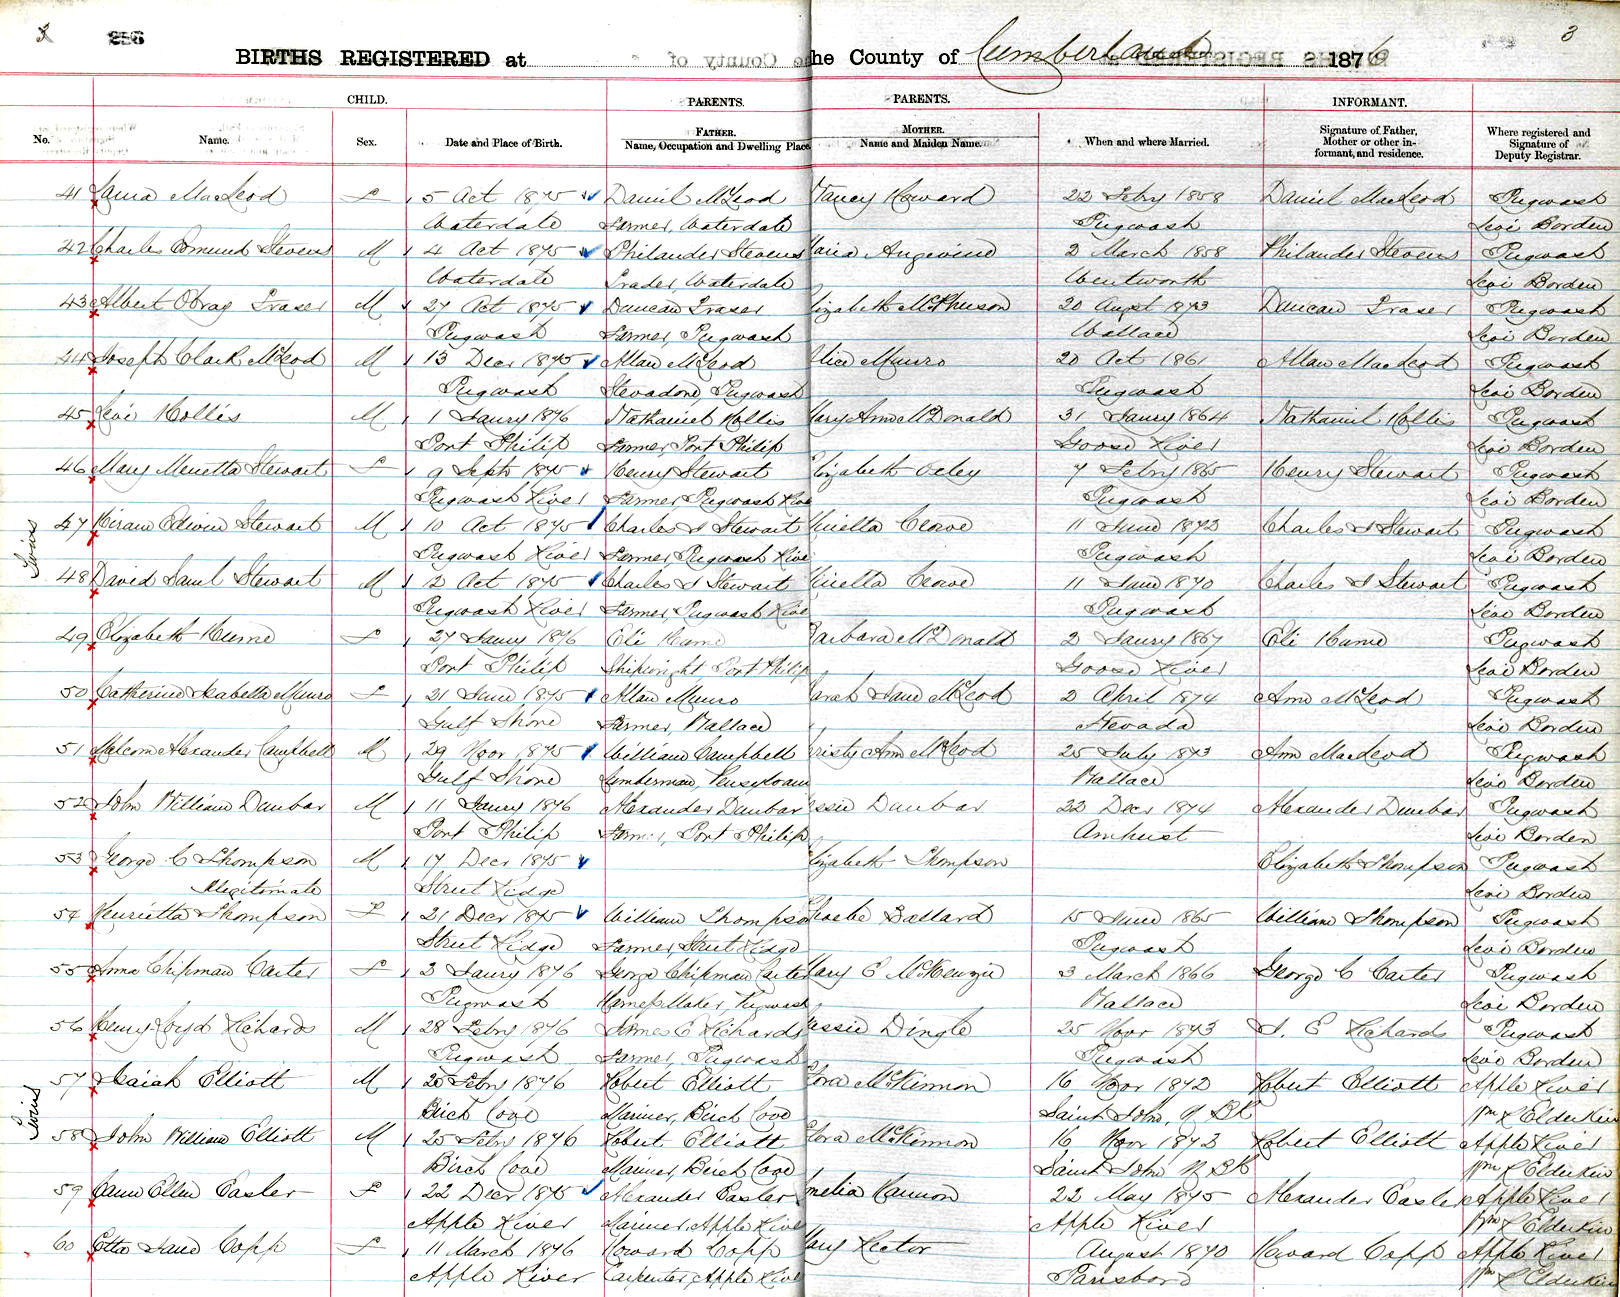 3 256 3
BIRTHS REGISTERED at he County of Cumberland 1876
CHILD. PARENTS. PARENTS. INFORMANT.
No. Name. Sex. Date and Place of Birth. FATHER. Name, Occupation and Dwelling Place MOTHER. Name and Maiden Name. When and where Married. Signature of Father, Mother or other informant, and residence. Where registered and Signature of Deputy Registrar.
41 MacLeod F 5 Oct 1875 Daniel McLeod Nancy Howard 22 Febry 1858 Daniel MacLeod Pugwash
Waterdale Farmer, Waterdale Pugwash Levi Borden
42 Charles Edmund Stevens M 4 Oct 1875 Philander Stevens Maria Angevine 2 March 1858 Philander Stevens Pugwash
Waterdale Trader, Waterdale Wentworth Levi Borden
43 Albert Fraser M 27 Oct 1875 Duncan Fraser lizabeth McPherson 20 Augst 1873 Duncan Fraser Pugwash
Pugwash Farmer, Pugwash Wallace Levi Borden
44 Joseph Clark McLeod M 13 Decr 1875 Allan McLeod Alice Munro 20 Oct 1861 Allan MacLeod Pugwash
Pugwash Stevadore Pugwash Pugwash Levi Borden
45 Levi Hollis M 1 Janry 1876 Nathaniel Hollis Mary Ann McDonald 31 Janry 1864 Nathaniel Hollis Pugwash
Port Philip Farmer, Port Philip Goose River Levi Borden
46 Mary Menetta Stewart F 9 Sept 1875 Henry Stewart lizabeth Oxley 7 Febry 1865 Henry Stewart Pugwash
Pugwash River Farmer, Pugwash Rive Pugwash Levi Borden
Twins 47 Hiram Edwin Stewart M 10 Oct 1875 Charles I Stewart Crowe 11 June 1872 Charles I Stewart Pugwash
Pugwash River Farmer, Pugwash Rive Pugwash Levi Borden
48 David Saml Stewart M 12 Oct 1875 Charles I Stewart Crowe 11 June 1870 Charles I Stewart Pugwash
Pugwash River Farmer, Pugwash Rive Pugwash Levi Borden
49 Elizabeth Hume F 27 Janry 1876 Eli Hume Barbara McDonald 2 Janry 1867 Eli Hume Pugwash
Port Philip Shipwright Port Philip Goose River Levi Borden
50 Catherine Isabella Munro F 21 June 1875 Allan Munro Sarah Jane McLeod 2 April 1874 Ann McLeod Pugwash
Gulf Shore Farmer, Wallace Nevada Levi Borden
51 Malcom Alexander Campbell M 29 Novr 1875 William Campbell hristy Ann McLeod 25 July 1873 Ann MacLeod Pugwash
Gulf Shore Lumberman, Pensylvani Wallace Levi Borden
52 John William Dunbar M 11 Janry 1876 Alexander Dunbar essie Dunbar 22 Decr 1874 Alexander Dunbar Pugwash
Port Philip Farmer, Port Philip Amherst Levi Borden
53 George C Thompson M 17 Decr 1875 Elizabeth Thompson Elizabeth Thompson Pugwash
Illegitimate Street Ridge Levi Borden
54 Henrietta Thompson F 21 Decr 1875 William Thompson Phoebe Ballard 15 June 1865 William Thompson Pugwash
Street Ridge Farmer, Street Ridge Pugwash Levi Borden
55 Anna Chipman Carter F 3 Janry 1876 George Chipman Carter Mary E McKenzie 3 March 1866 George C Carter Pugwash
Pugwash Harness Maker, Pugwash Wallace Levi Borden
56 Henry Richards M 28 Febry 1876 James E Richards essie Dingle 25 Novr 1873 J. E Richards Pugwash
Pugwash Farmer, Pugwash Pugwash Levi Borden
Twins 57 Isaiah Elliott M 25 Febry 1876 Robert Elliott lora McKinnon 16 Novr 1872 Robert Elliott Apple River
Birch Cove Mariner, Birch Cove Saint John, N BK Wm R Elderkin
58 John William Elliott M 25 Febry 1876 Robert Elliott lora McKinnon 16 Novr 1872 Robert Elliott Apple River
Birch Cove Mariner, Birch Cove Saint John N BK Wm R Elderkin
59 Ellen Easler F 22 Decr 1875 Alexander Easler melia Hannon 22 May 1875 Alexander Easler Apple River
Apple River Mariner, Apple Rive Apple River Wm R Elderkin
60 Etta Jane Copp F 11 March 1876 Howard Copp Mary Rector August 1870 Howard Copp Apple River
Apple River Carpenter, Apple Rive Parrsboro Wm R Elderkin